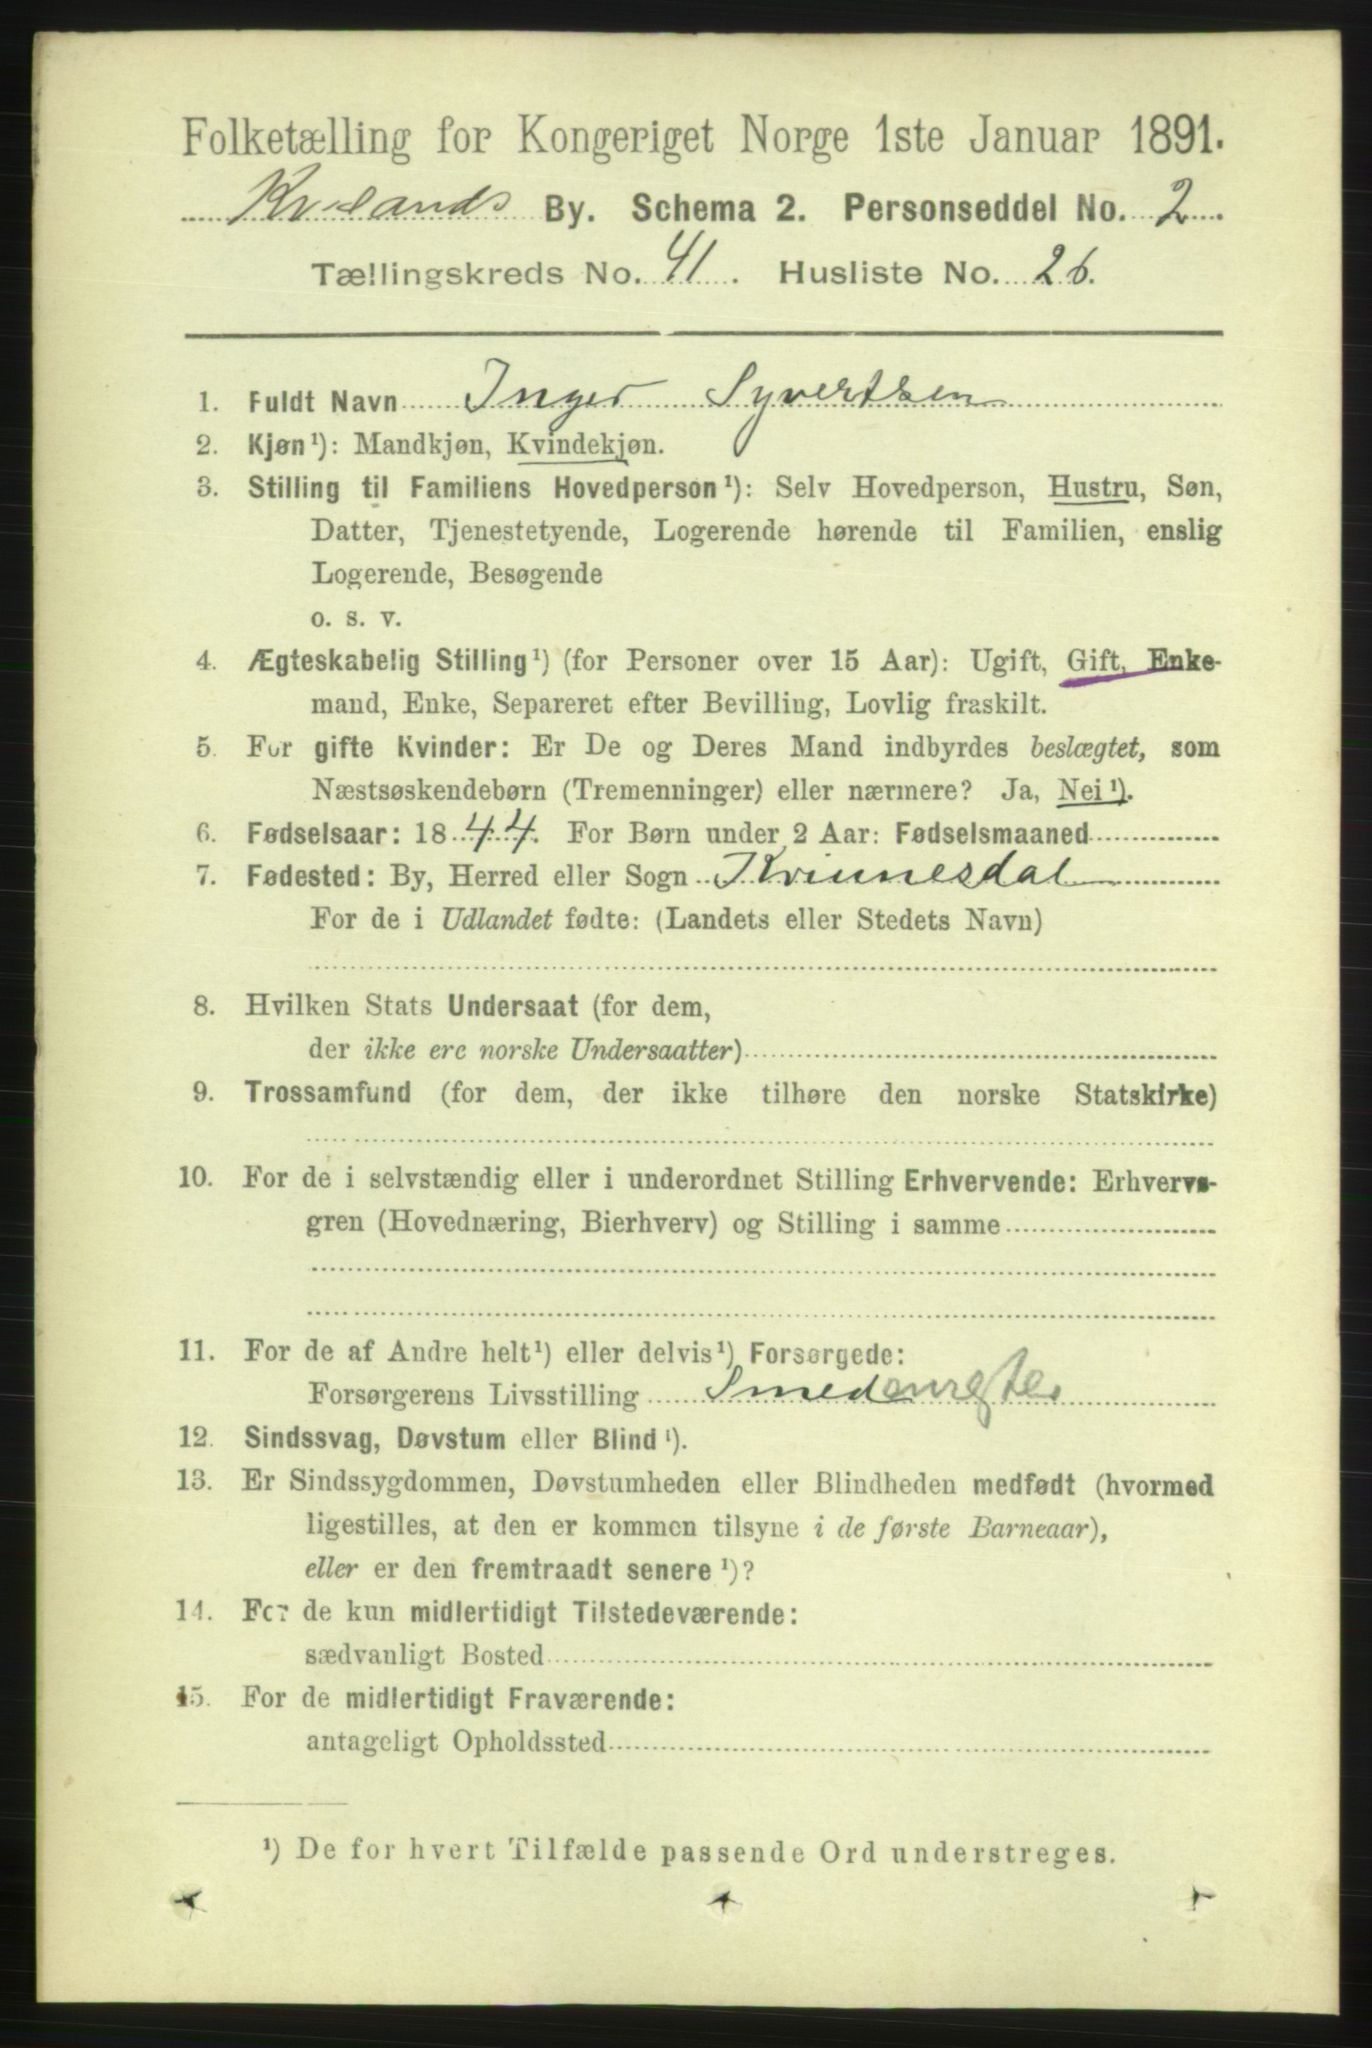 Folketælling for Kongeriget Norge 1ste Januar 1891.
Kr.sands By. Schema 2. Personseddel No. 2.
Tællingskreds No. 41. Husliste No. 26.
1. Fuldt Navn Inger Syvertsen
2. Kjøn ¹): Mandkjøn, Kvindekjøn.
3. Stilling til Familiens Hovedperson ¹): Selv Hovedperson, Hustru, Søn,
Datter, Tjenestetyende, Logerende hørende til Familien, enslig
Logerende, Besøgende
o. s. v.
4. Ægteskabelig Stilling ¹) (for Personer over 15 Aar): Ugift, Gift, Enke-
mand, Enke, Separeret efter Bevilling, Lovlig fraskilt.
5. For gifte Kvinder: Er De og Deres Mand indbyrdes beslægtet, som
Næstsøskendebørn (Tremenninger) eller nærmere? Ja, Nei ¹).
6. Fødselsaar: 1844. For Børn under 2 Aar: Fødselsmaaned
7. Fødested: By, Herred eller Sogn Kvinnesdal
For de i Udlandet fødte: (Landets eller Stedets Navn)
8. Hvilken Stats Undersaat (for dem,
der ikke ere norske Undersaatter)
9. Trossamfund (for dem, der ikke tilhøre den norske Statskirke)
10. For de i selvstændig eller i underordnet Stilling Erhvervende: Erhvervs-
gren (Hovednæring, Bierhverv) og Stilling i samme
11. For de af Andre helt ¹) eller delvis ¹) Forsørgede:
Forsørgerens Livsstilling Smed
12. Sindssvag, Døvstum eller Blind ¹).
13. Er Sindssygdommen, Døvstumheden eller Blindheden medfødt (hvormed
ligestilles, at den er kommen tilsyne i de første Barneaar),
eller er den fremtraadt senere ¹)?
14. For de kun midlertidigt Tilstedeværende:
sædvanligt Bosted
15. For de midlertidigt Fraværende:
antageligt Opholdssted
¹) De for hvert Tilfælde passende Ord understreges.